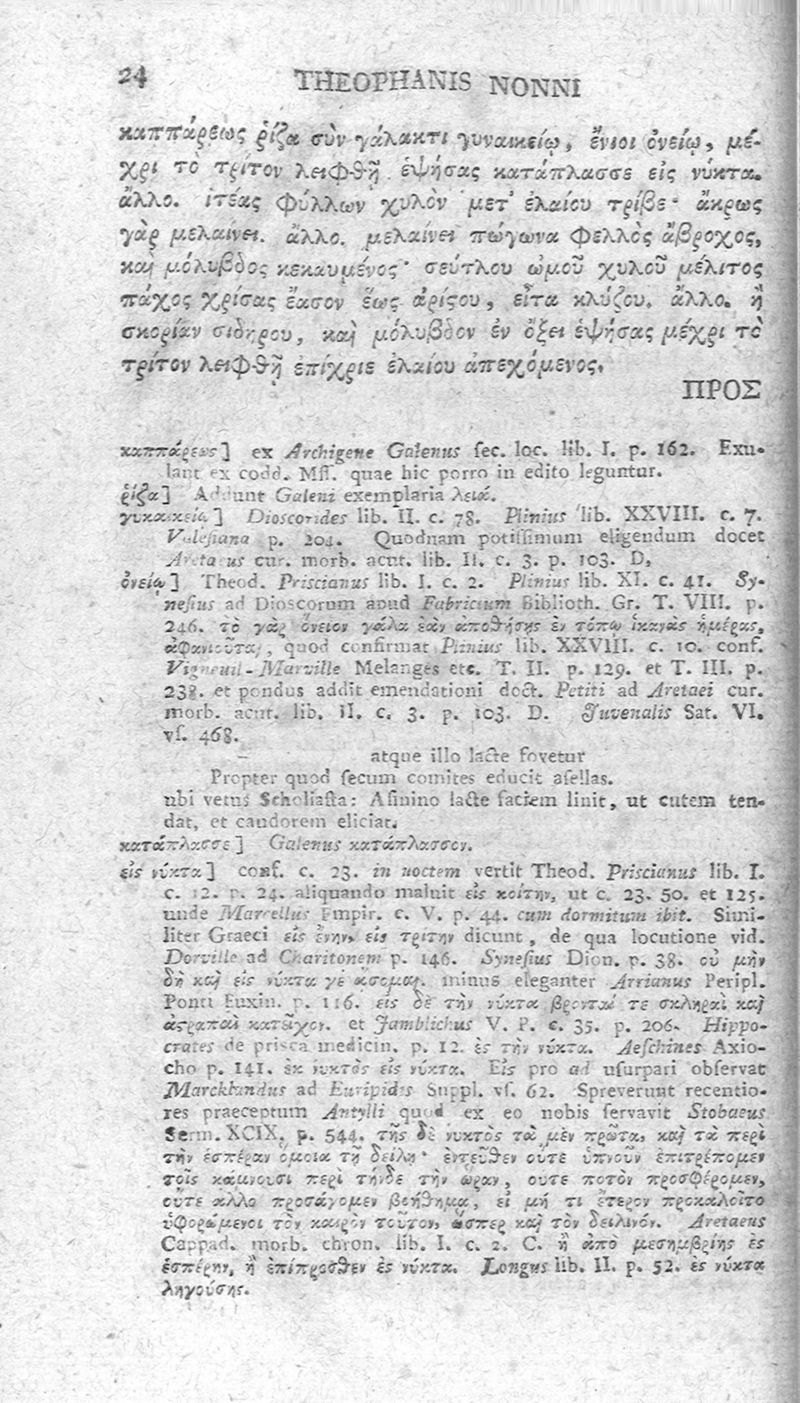 24 THEOPHANIS NONNI
καππάρεως ῥίζα σὺν γάλακτι γυναικείῳ, ἔνιοι ὀνείῳ, μέ-
χρι τὸ τρίτον λειφθῇ ἑψήσας κατάπλασσε εἰς νύκτα.
ἄλλο. ἰτέας φύλλων χυλὸν μετ' ἐλαίου τρίβε· ἄκρως
γὰρ μελαίνει. ἄλλο. μελαίνει πώγωνα φελλὸς ἄβροχος,
καὶ μόλυβδος κεκαυμένος· σεύτλου ὠμοῦ χυλοῦ μέλιτος
πάχος χρίσας ἔασον ἕως ἀρίςου, εἶτα κλύζου. ἄλλο. ἢ
σκορίαν σιδήρου, καὶ μόλυβδον ἐν ὄξει ἑψήσας μέχρι τὸ
τρίτον λειφθῇ ἐπίχριε ἐλαίου ἀπεχόμενος.
ΠΡΟΣ
καππάρεως] ex Archigene Galenus ſec. loc. lib. I. p. 162. Exu-
lant ex codd. Mſſ. quae hic porro in edito leguntur.
ῥίζα] Addunt Galeni exemplaria λειά.
γυκαικείῳ] Dioscorides lib. II. c. 78. Plinius lib. XXVIII. c. 7.
Valeſiana p. 204. Quodnam potiſſimum eligendum docet
Aretaeus cur. morb. acut. lib. II. c. 3. p. 103. D,
ὀνείῳ] Theod. Priscianus lib. I. c. 2. Plinius lib. XI. c. 41. Sy-
neſius ad Dioscorum apud Fabricium Biblioth. Gr. T. VIII. p.
246. τὸ γὰρ ὄνειον γάλα ἐὰν ἀποθήσῃς ἐν τόπῳ ἱκανὰς ἡμέρας,
ἀφανιοῦται, quod confirmat Plinius lib. XXVIII. c. 10. conf.
Vigneuil-Marville Melanges etc. T. II. p. 129. et T. III. p.
238. et pondus addit emendationi doct. Petiti ad Aretaei cur.
morb. acut. lib. II. c. 3. p. 103. D. Juvenalis Sat. VI.
vſ. 468.
– atque illo lacte fovetur
Propter quod ſecum comites educit aſellas.
ubi vetus Scholiaſta: Aſinino lacte faciem linit, ut cutem ten-
dat, et candorem eliciat.
κατάπλασσε] Galenus κατάπλασσον.
εἰς νύκτα] conf. c. 23. in noctem vertit Theod. Priscianus lib. I.
c. 12. p. 24. aliquando maluit εἰς κοίτην, ut c. 23. 50. et 125.
unde Marcellus Empir. c. V. p. 44. cum dormitum ibit. Simi-
liter Graeci εἰς ἔνην, εἰς τρίτην dicunt, de qua locutione vid.
Dorville ad Charitonem p. 146. Syneſius Dion. p. 38. οὐ μὴν
δὴ καὶ εἰς νύκτα γε ᾄσομαι. minus eleganter Arrianus Peripl.
Ponti Euxin. p. 116. εἰς δὲ τὴν νύκτα βρονταί τε σκληραὶ καὶ
ἀςραπαὶ κατεῖχον. et Jamblichus V. P. c. 35. p. 206. Hippo-
crates de prisca medicin. p. 12. ἐς τὴν νύκτα. Aeſchines Axio-
cho p. 141. ἐκ νυκτὸς εἰς νύκτα. Εἰς pro ad uſurpari obſervat
Marcklandus ad Euripidis Suppl. vſ. 62. Spreverunt recentio-
res praeceptum Antylli quod ex eo nobis ſervavit Stobaeus
Serm. XCIX. p. 544. τῆς δὲ νυκτὸς τὰ μὲν πρῶτα, καὶ τὰ περὶ
τὴν ἑσπέραν ὅμοια τῇ δείλῃ· ἐντεῦθεν οὔτε ὑπνοῦν ἐπιτρέπομεν
τοῖς κάμνουσι περὶ τήνδε τὴν ὥραν, ουτε ποτὸν προσφέρομεν,
οὔτε ἄλλο προσάγομεν βοήθημα, εἰ μή τι ἕτερον προκαλοῖτο
ὑφορώμενοι τὸν καιρὸν τοῦτον, ὥσπερ καὶ τὸν δειλινόν. Aretaeus
Cappad. morb. chron. lib. I. c. 2. C. ἢ ἀπὸ μεσημβρίης ἐς
ἑσπέρην, ἢ ἐπίπροσθεν ἐς νύκτα. Longus lib. II. p. 52. ἐς νύκτα
ληγούσης.